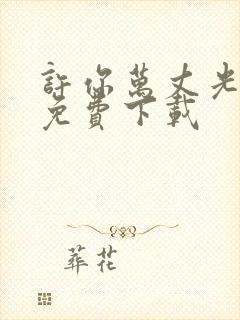 許你萬丈光
免費下載
葬花